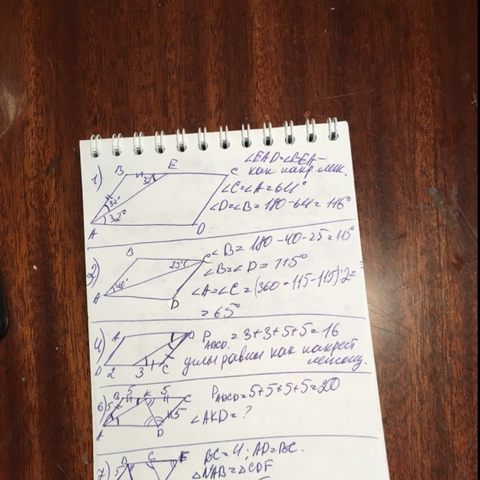 1)
B E C
32°
32°
32°
A D
∠EAD=∠BEA –
как накр. леж.
∠C=∠A=64°
∠D=∠B=180-64=116°
2)
B 25° C
40°
A D
∠B=180-40-25=115°
∠B=∠D=115°
∠A=∠C=(360-115-115):2=
=65°
4)
A
D 2 3 C
P ABCD = 3+3+5+5=16
углы равны как накрест
лежащ.
6)
B 5 K 5 C
5 5
A D
P ABCD = 5+5+5+5=20
∠AKD=?
7)
BC=4; AD=BC.
△NAB=△CDF